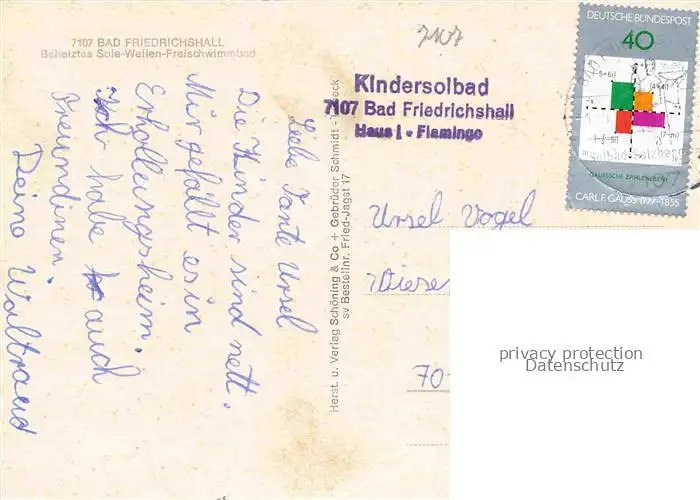 7107 BAD FRIEDRICHSHALL
Beheiztes Sole-Wellen-Freischwimmbad
Liebe Tante Ursel
Die Kinder sind nett.
Mir gefällt es in
Erhollungsheim.
Ich habe auch
Freundinen.
Deine Waltraud
Herst. u. Verlag Schöning & Co + Gebrüder Schmidt
sv Bestellnr. Fried-Jagst 17
7107
Kindersolbad
7107 Bad Friedrichshall
Haus I - Flamingo
DEUTSCHE BUNDESPOST
40
GAUSSSCHE ZAHLENEBENE
CARL F. GAUSS 1777-1855
Ursel Vogel
Wiese
70
privacy protection
Datenschutz